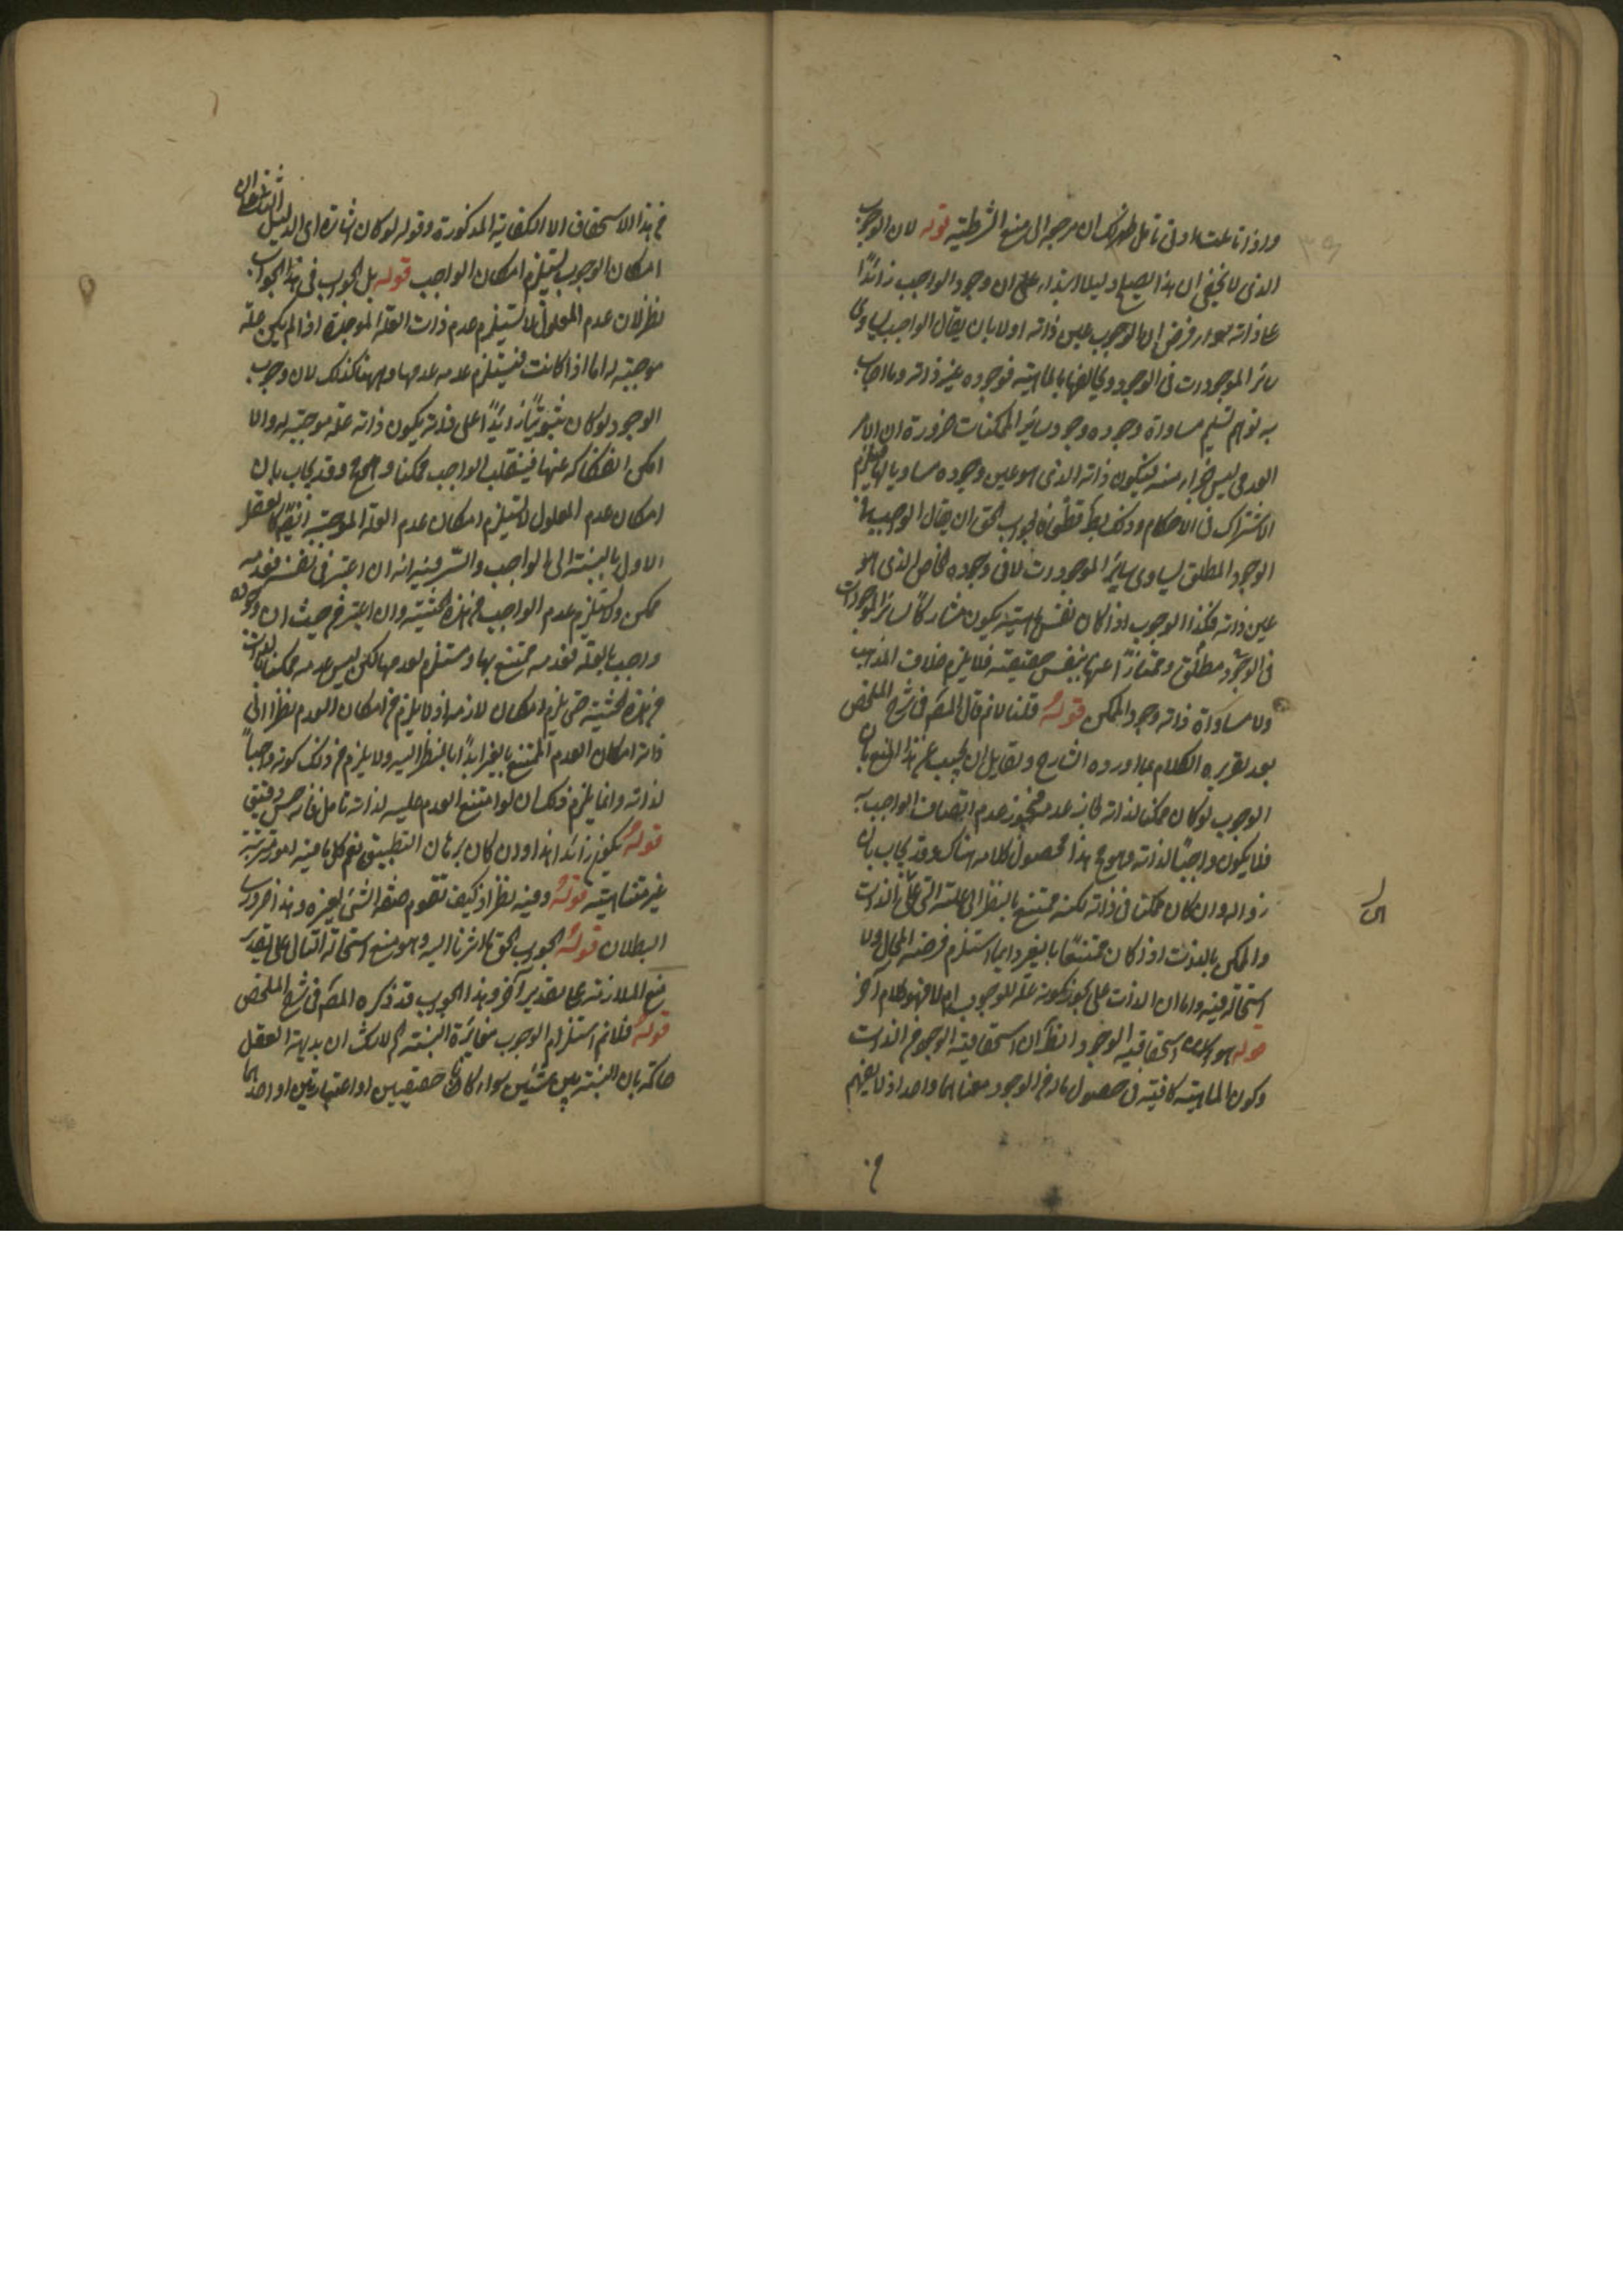 واذا تاملت ادنى تامل ظهر لك ان مرجعه الى منع الشرطية قوله لان الوجوب
الذى لا يخفى ان هذا يصلح دليلا ابتداء على ان وجود الواجب زائدا
على ذاته سواء فرض ان الوجوب عين ذاته اولا بان يقال الواجب يساوى
سائر الموجودات فى الوجود ويخالفها بالماهية فوجوده غير ذاته وما اجاب
به توهم تسليم مساواة وجوده وجود سائر الممكنات ضرورة ان الامر
العدمى ليس جزاء منه فيكون ذاته الذى هو عين وجوده مساويا لها فيلزم
الاشتراك فى الاحكام وذلك بط قطعا فالجواب الحق ان يقال الواجب فى
الوجود المطلق يساوى سائر الموجودات لا فى وجوده الخاص الذى هو
عين ذاته فكذا الوجوب اذا كان نفس ماهيته يكون مشاركا لسائر الموجودات
فى الوجود مطلق وممتازا عنها بنفس حقيقته فلا يلزم خلاف المذهب
ولا مساواة ذاته وجود الممكن قوله قلنا لانم قال المص فى شرح الملخص
بعد تقريره الكلام بما اورده الشارح ولقايل ان يجيب عن هذا المنع بان
الوجوب لو كان ممكنا لذاته لجاز عدمه فيجوز عدم اتصاف الواجب به
فلا يكون واجبا لذاته وهو مح هذا محصول كلامه هناك وقد يجاب بان
زواله وان كان ممكنا فى ذاته لكنه ممتنع بالنظر الى علته التى هى الذات
والممكن بالذات اذا كان ممتنعا بالغير دايما استلزم فرضه المحال ولا
استحالة فيه واما ان الذات على يجوز كونه علة للوجوب ام لا فهو كلام آخر
قوله هو استحقاقية الوجود الظ ان استحقاقية الوجود من الذات
وكون الماهية كافية فى حصول مالها من الوجود معناهما واحد اذ لا يفهم
من هذا الاستحقاق الا الكفاية المذكورة وقوله لو كان اشارة الى الدليل الثانى ان
امكان الوجوب يستلزم امكان الواجب قوله بل الجواب فى هذا الجواب
نظر لان عدم المعلول لا يستلزم عدم ذات العلة الموجدة اذا لم يكن علة
موجبة له اما اذا كانت فيستلزم عدمه عدمها وههنا كذلك لان وجوب
الوجود لو كان ثبوتيا زائدا على ذاته يكون ذاته علة موجبة له والا
امكن انفكاكه عنها فينقلب الواجب ممكنا وهو مح وقد يجاب بان
امكان عدم المعلول لا يستلزم امكان عدم العلة الموجبة ايضا كالعقل
الاول بالنسبة الى الواجب والسر فيه انه ان اعتبر فى نفسه فعدمه
ممكن ولا يستلزم عدم الواجب من هذه الحيثية وان اعتبر من حيث ان وجوده
واجب بالعلة فعدمه ممتنع بها ومستلزم لعدمها لكن ليس عدمه ممكنا بالذات
من هذه الحيثية حتى يلزم امكان لازمه اذ لا يلزم من امكان العدم نظرا الى
ذاته امكان العدم الممتنع بالغير ابدا بالنظر اليه ولا يلزم من ذلك كونه واجبا
لذاته وانما يلزم ذلك ان لو امتنع العدم عليه لذاته تامل فانه حسن دقيق
قوله يكون زائدا هذا وان كان برهان التطبيق نعم كل ما فيه امور مترتبة
غير متناهية قوله وفيه نظر اذ كيف تقوم صفة الشئ بغيره وهذا ضرورى
البطلان قوله الجواب الحق ما اشرنا اليه وهو منع استحالة التسلسل على تقدير
منع الملازمة على تقدير آخر وهذا الجواب قد ذكره المص فى شرح الملخص
قوله فلانم استلزام الوجوب مغايرة النسبة لم لا شك ان بديهة العقل
حاكمة بان النسبة بين شيئين سواء كانا حقيقيين او اعتباريين او احدهما